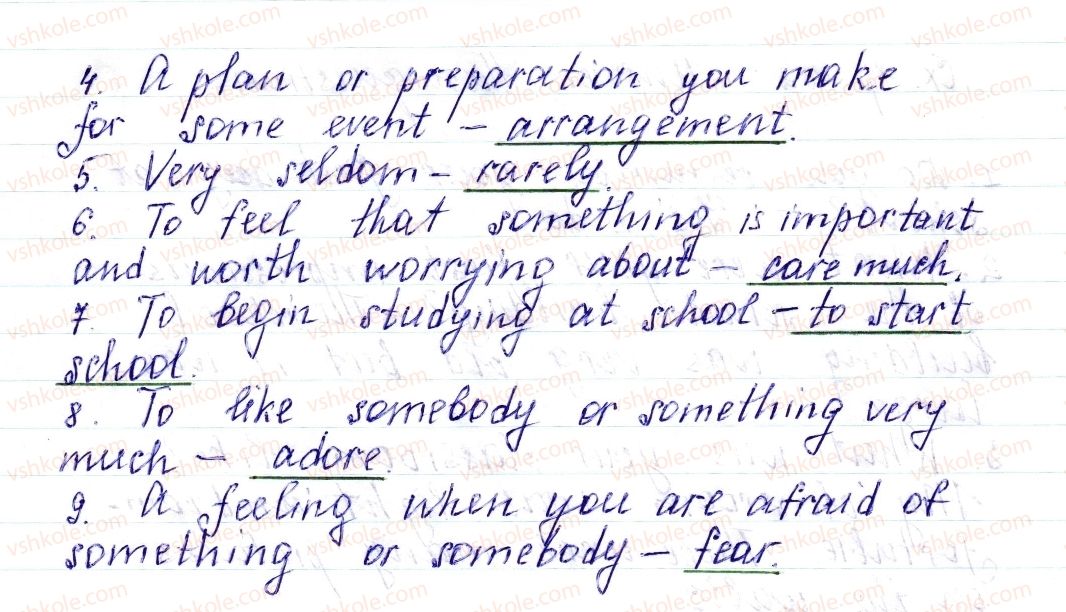 4. A plan or preparation you make
for some event – arrangement.
5. Very seldom – rarely.
6. To feel that something is important
and worth worrying about – care much.
7. To begin studying at school – to start
school.
8. To like somebody or something very
much – adore.
9. A feeling when you are afraid of
something or somebody – fear.